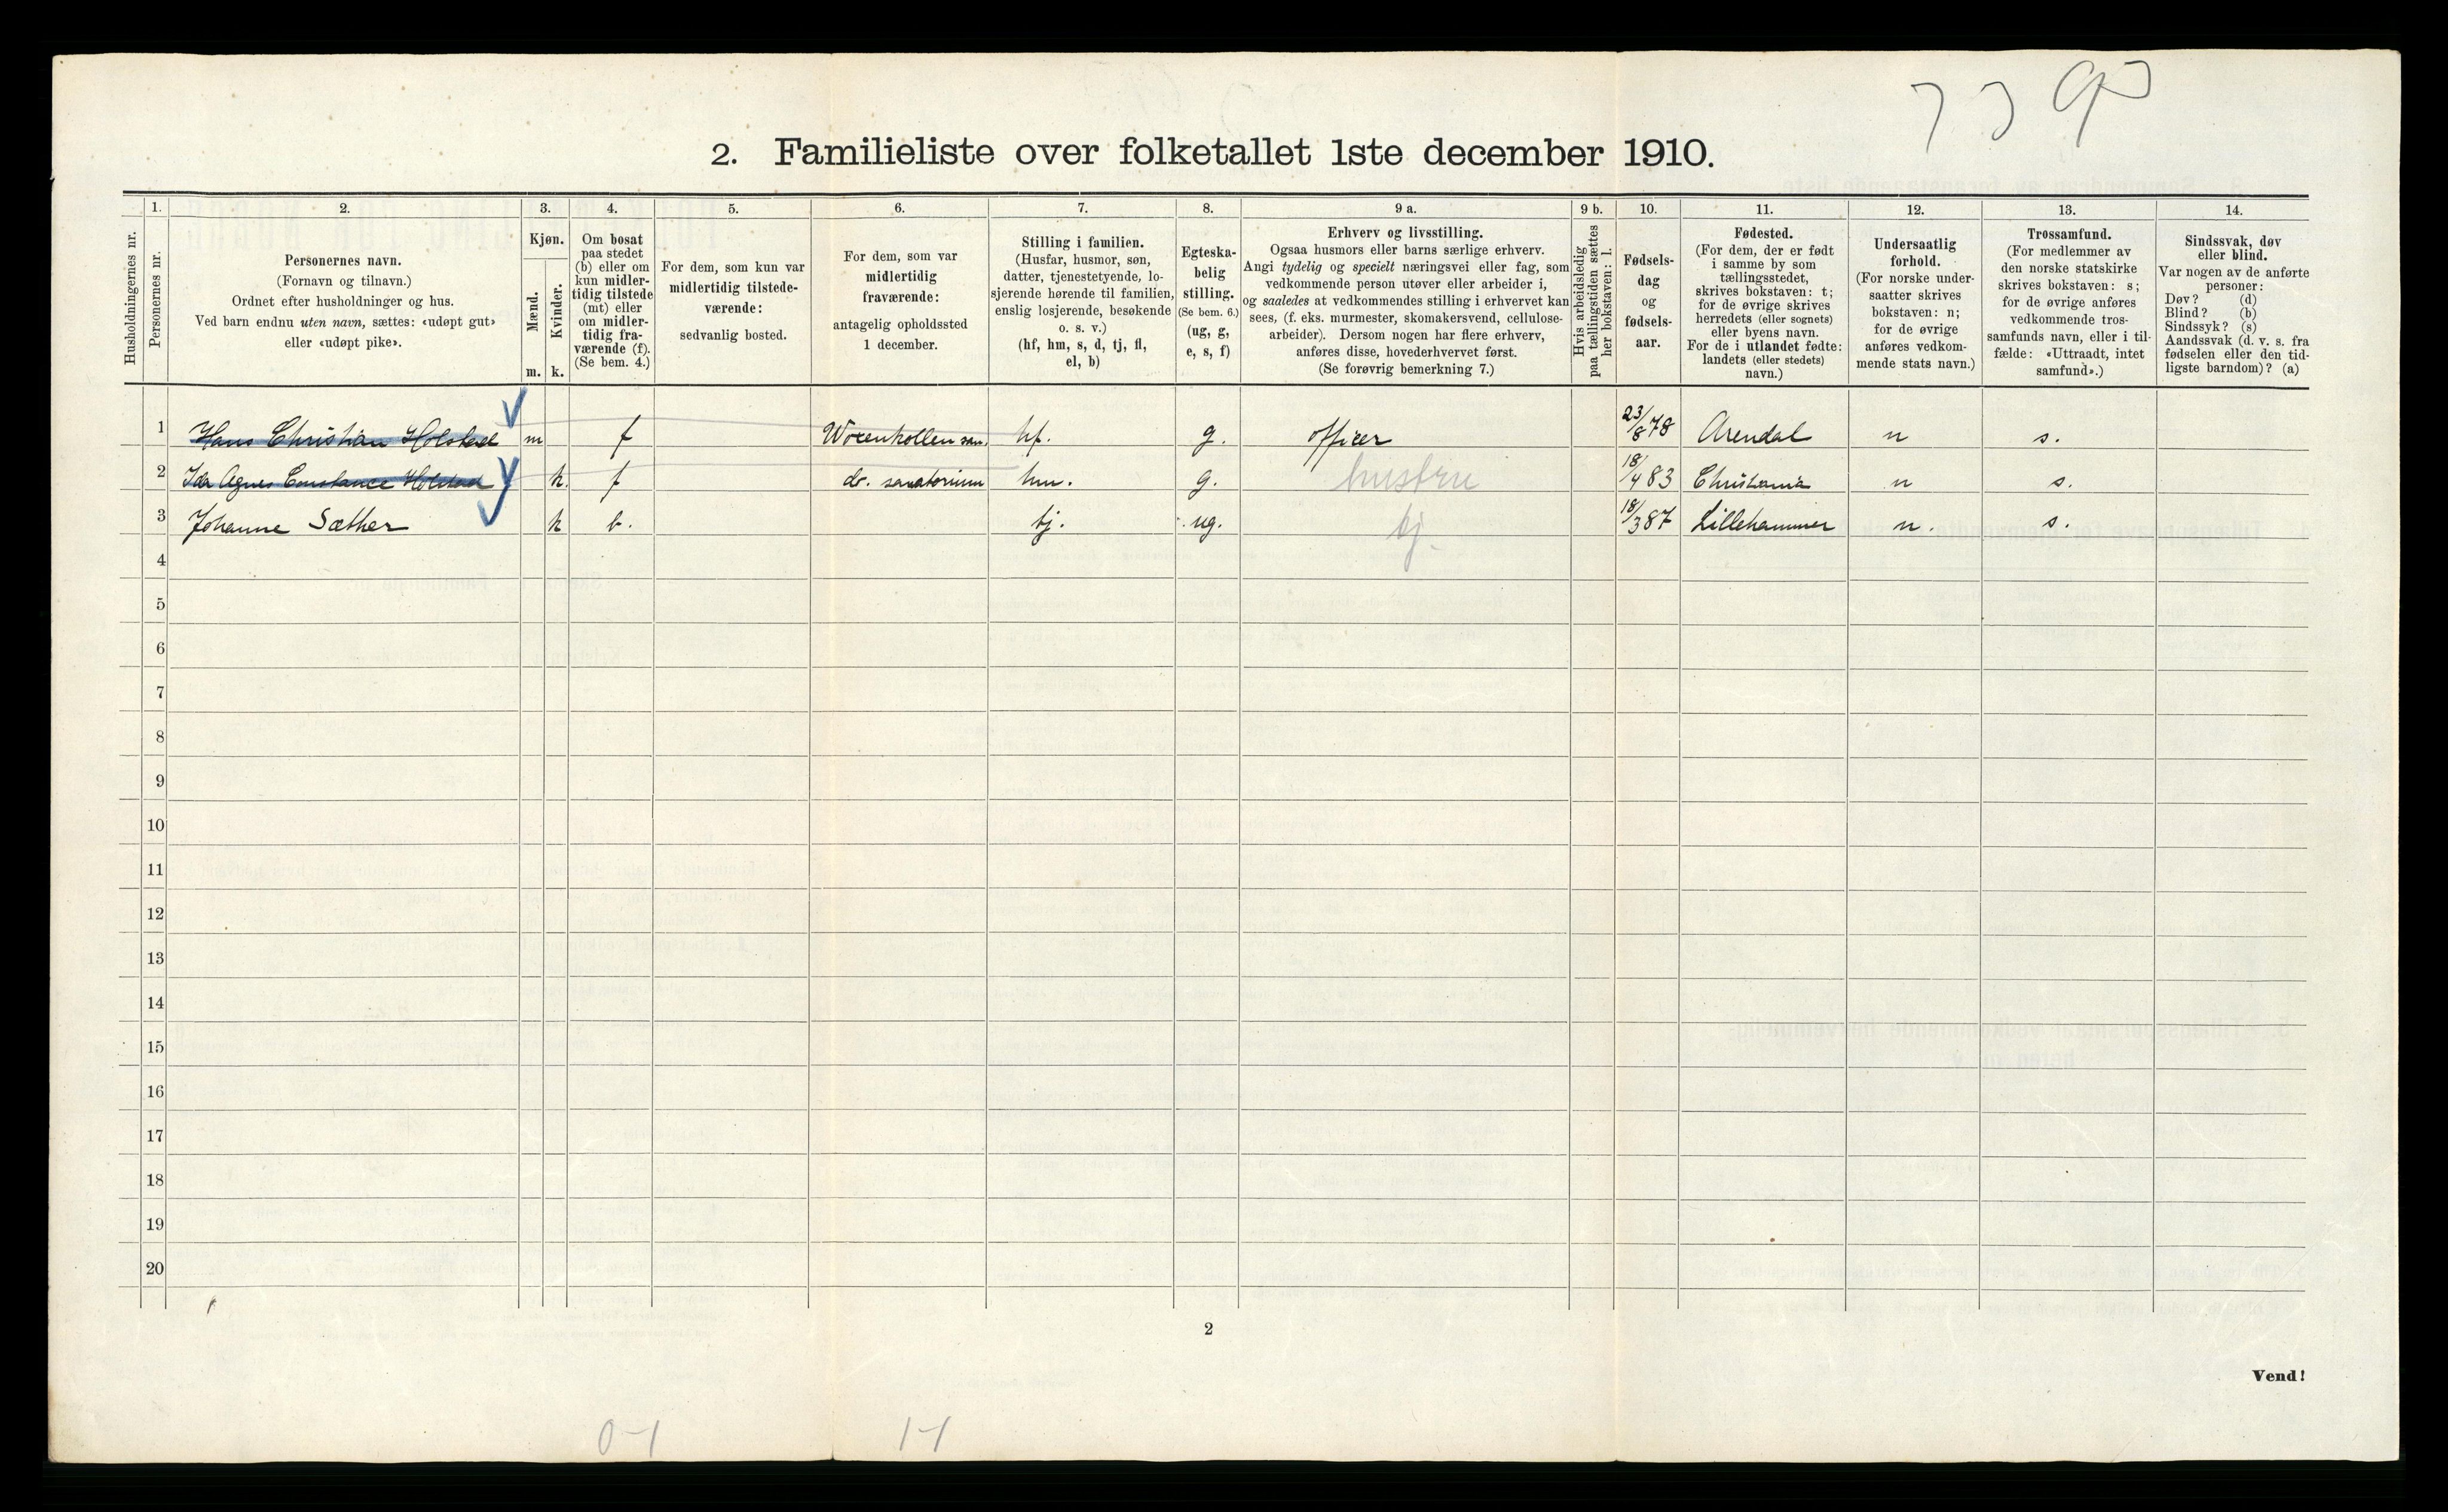 2. Familieliste over folketallet 1ste december 1910.
Husholdningernes nr.
1.
Personernes nr.
2.
Personernes navn.
(Fornavn og tilnavn.)
Ordnet efter husholdninger og hus.
Ved barn endnu uten navn, sættes: «udøpt gut»
eller «udøpt pike».
3.
Kjøn.
Mænd.
m.
Kvinder.
k.
4.
Om bosat
paa stedet
(b) eller om
kun midler-
tidig tilstede
(mt) eller
om midler-
tidig fra-
værende (f).
(Se bem. 4.)
5.
For dem, som kun var
midlertidig tilstede-
værende:
sedvanlig bosted.
6.
For dem, som var
midlertidig
fraværende:
antagelig opholdssted
1 december.
7.
Stilling i familien.
(Husfar, husmor, søn,
datter, tjenestetyende, lo-
sjerende hørende til familien,
enslig losjerende, besøkende
o. s. v.)
(hf, hm, s, d, tj, fl,
el, b)
8.
Egteska-
belig
stilling.
(Se bem. 6.)
(ug, g,
e, s, f)
9 a.
Erhverv og livsstilling.
Ogsaa husmors eller barns særlige erhverv.
Angi tydelig og specielt næringsvei eller fag, som
vedkommende person utøver eller arbeider i,
og saaledes at vedkommendes stilling i erhvervet kan
sees, (f. eks. murmester, skomakersvend, cellulose-
arbeider). Dersom nogen har flere erhverv,
anføres disse, hovederhvervet først.
(Se forøvrig bemerkning 7.)
9 b.
Hvis arbeidsledig
paa tællingstiden sættes
her bokstaven: l.
10.
Fødsels-
dag
og
fødsels-
aar.
11.
Fødested.
(For dem, der er født
i samme by som
tællingsstedet,
skrives bokstaven: t;
for de øvrige skrives
herredets (eller sognets)
eller byens navn.
For de i utlandet fødte:
landets (eller stedets)
navn.)
12.
Undersaatlig
forhold.
(For norske under-
saatter skrives
bokstaven: n;
for de øvrige
anføres vedkom-
mende stats navn.)
13.
Trossamfund.
(For medlemmer av
den norske statskirke
skrives bokstaven: s;
for de øvrige anføres
vedkommende tros-
samfunds navn, eller i til-
fælde: «Uttraadt, intet
samfund».)
14.
Sindssvak, døv
eller blind.
Var nogen av de anførte
personer:
Døv? (d)
Blind? (b)
Sindssyk? (s)
Aandssvak (d. v. s. fra
fødselen eller den tid-
ligste barndom)? (a)
1 Hans Christian m f san. hf. g. officer 23/8 78 Arendal n s.
2 Ida Agnes Constance k. f do. sanatorium hm. g. hustru 18/4 83 Christiania n s.
3 Johanne Sæther k b. tj. ug. tj. 18/3 87 Lillehammer n. s.
4
5
6
7
8
9
10
11
12
13
14
15
16
17
18
19
20
2
Vend!
0-1 1-1